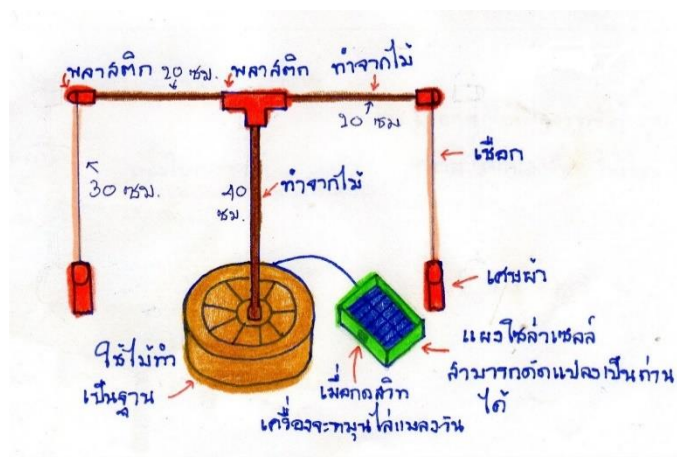 พลาสติก 20 ซม. พลาสติก ทำจากไม้
20 ซม.
เชือก
30 ซม.
40
ซม.
ทำจากไม้
เศษผ้า
ใช้ไม้ทำ
เป็นฐาน
แผงโซล่าเซลล์
สามารถดัดแปลงเป็นถ่าน
ได้
เมื่อกดสวิท
เครื่องจะหมุนไล่แมลงวัน